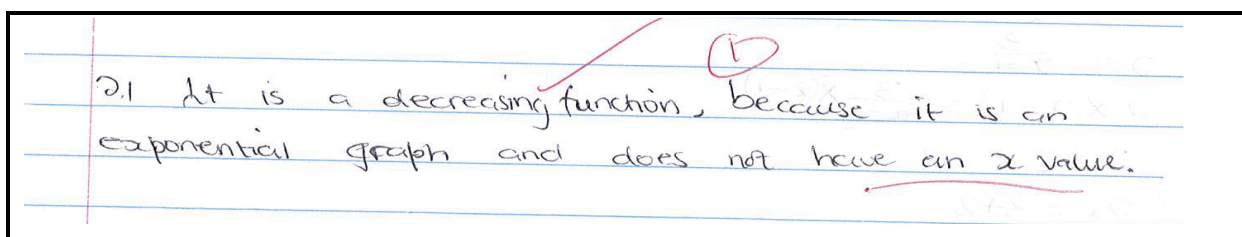 ①
2.1 It is a decreasing function, because it is an
exponential graph and does not have an x value.